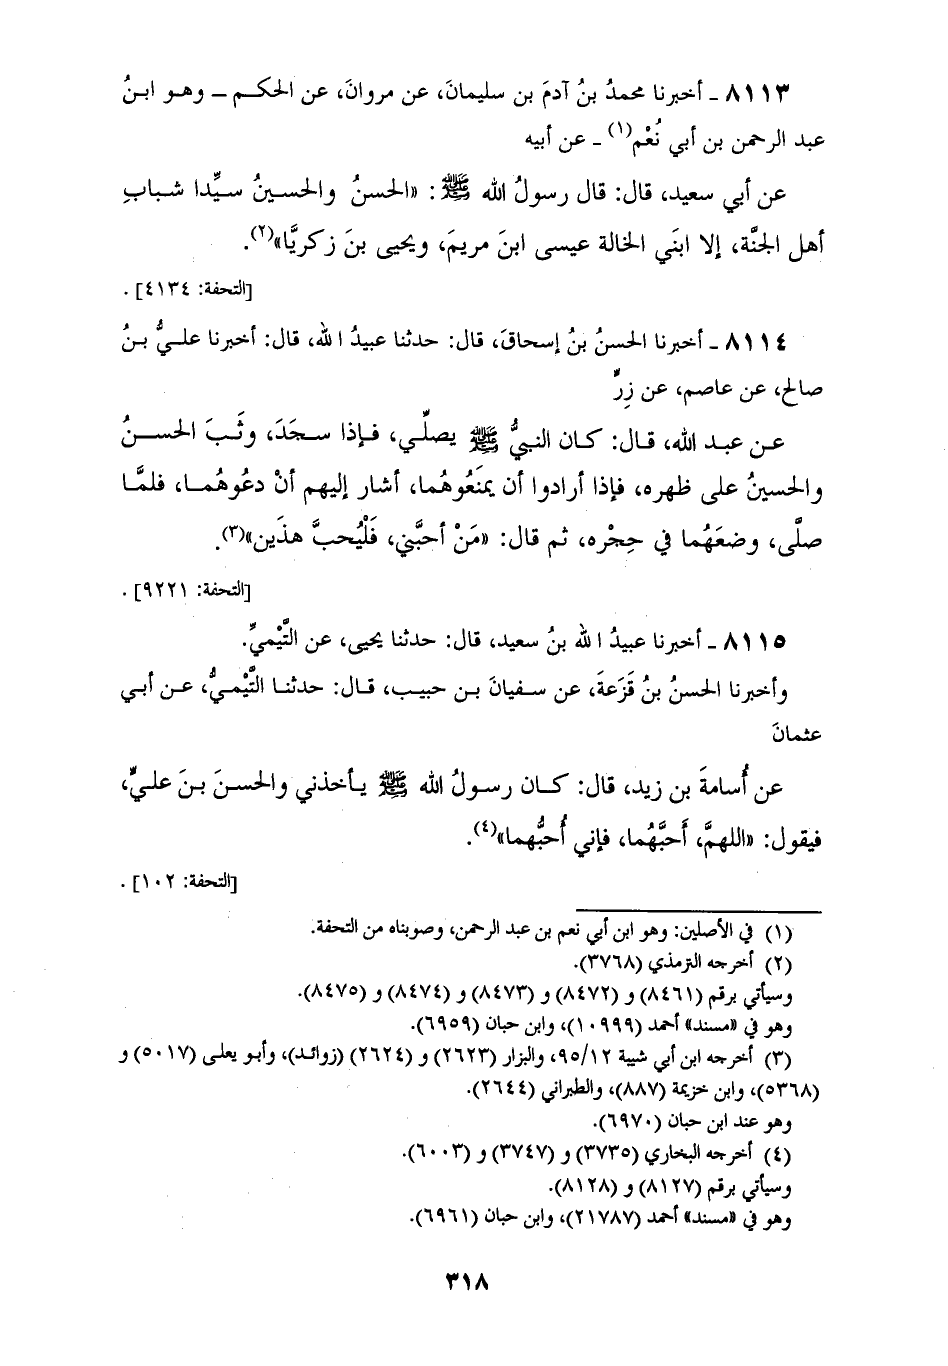 ٨١١٣ ـ أخبرنا محمدُ بنُ آدمَ بن سليمانَ، عن مروانَ، عن الحكم ـ وهو ابنُ
عبد الرحمن بن أبي نُعْم(١) ـ عن أبيه
عن أبي سعيد، قال: قال رسولُ الله ﷺ: «الحسنُ والحسينُ سيِّدا شبابِ
أهل الجنَّة، إلا ابنَي الخالة عيسى ابنَ مريمَ، ويحيى بنَ زكريَّا»(٢).
[التحفة: ٤١٣٤] .
٨١١٤ ـ أخبرنا الحسنُ بنُ إسحاقَ، قال: حدثنا عبيدُ الله، قال: أخبرنا عليُّ بنُ
صالح، عن عاصم، عن زِرٍّ
عن عبد الله، قال: كان النبيُّ ﷺ يصلِّي، فإذا سجَدَ، وثَبَ الحسنُ
والحسينُ على ظهره، فإذا أرادوا أن يمنَعُوهُما، أشار إليهم أنْ دعُوهُما، فلمَّا
صلَّى، وضعَهُما في حِجْره، ثم قال: «مَنْ أحبَّني، فَلْيُحبَّ هذَين»(٣).
[التحفة: ٩٢٢١] .
٨١١٥ ـ أخبرنا عبيدُ الله بنُ سعيد، قال: حدثنا يحيى، عن التَّيْميِّ.
وأخبرنا الحسنُ بنُ قَزَعةَ، عن سفيانَ بن حبيب، قال: حدثنا التَّيْميُّ، عن أبي
عثمانَ
عن أُسامةَ بن زيد، قال: كان رسولُ الله ﷺ يأخذني والحسنَ بنَ عليٍّ،
فيقول: «اللهمَّ، أَحبَّهُما، فإني أُحبُّهما»(٤).
[التحفة: ١٠٢] .
(١) في الأصلين: وهو ابن أبي نعم بن عبد الرحمن، وصوبناه من التحفة.
(٢) أخرجه الترمذي (٣٧٦٨).
وسيأتي برقم (٨٤٦١) و (٨٤٧٢) و (٨٤٧٣) و (٨٤٧٤) و (٨٤٧٥).
وهو في «مسند» أحمد (١٠٩٩٩)، وابن حبان (٦٩٥٩).
(٣) أخرجه ابن أبي شيبة ٩٥/١٢، والبزار (٢٦٢٣) و (٢٦٢٤) (زوائد)، وأبو يعلى (٥٠١٧) و
(٥٣٦٨)، وابن خزيمة (٨٨٧)، والطبراني (٢٦٤٤).
وهو عند ابن حبان (٦٩٧٠).
(٤) أخرجه البخاري (٣٧٣٥) و (٣٧٤٧) و (٦٠٠٣).
وسيأتي برقم (٨١٢٧) و (٨١٢٨).
وهو في «مسند» أحمد (٢١٧٨٧)، وابن حبان (٦٩٦١).
٣١٨